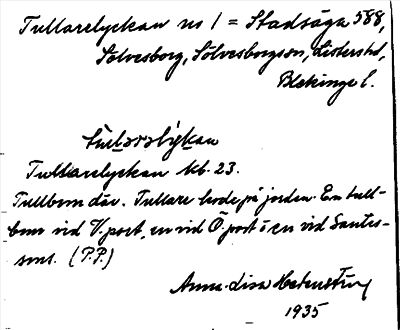 Tullarelyckan no 1 = Stadsäga 588,
Sölvesborg, Sölvesborgssn, Listershd,
Blekinge l.
Tullarelyckan kb. 23.
Tullbom där. Tullare bodde på jorden. En tull-
bom vid V. port, en vid Ö. port i en vid Santes-
sons. (P.P.)
Anna-Lisa
1935